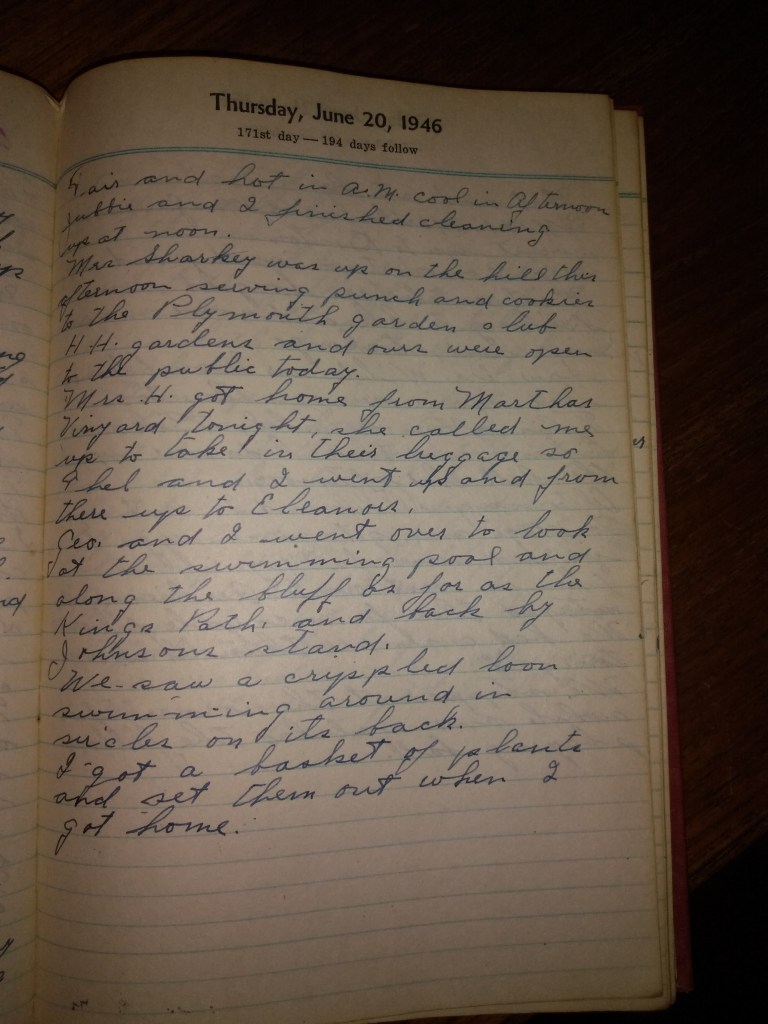 Thursday, June 20, 1946
171st day — 194 days follow
Fair and hot in A.M. cool in Afternoon
and I finished cleaning
up at noon.
Mrs Sharkey was up on the hill this
afternoon serving punch and cookies
to the Plymouth garden club
H.H. gardens and ours were open
to the public today.
Mrs. H. got home from Marthas
Vinyard tonight, she called me
up to take in their luggage so
and I went up and from
there up to Eleanors.
Geo. and I went over to look
at the swimming pool and
along the bluff as far as the
Kings Path. and back by
Johnsons stand.
We saw a crippled loon
swimming around in
circles on its back.
I got a basket of plants
and set them out when I
got home.